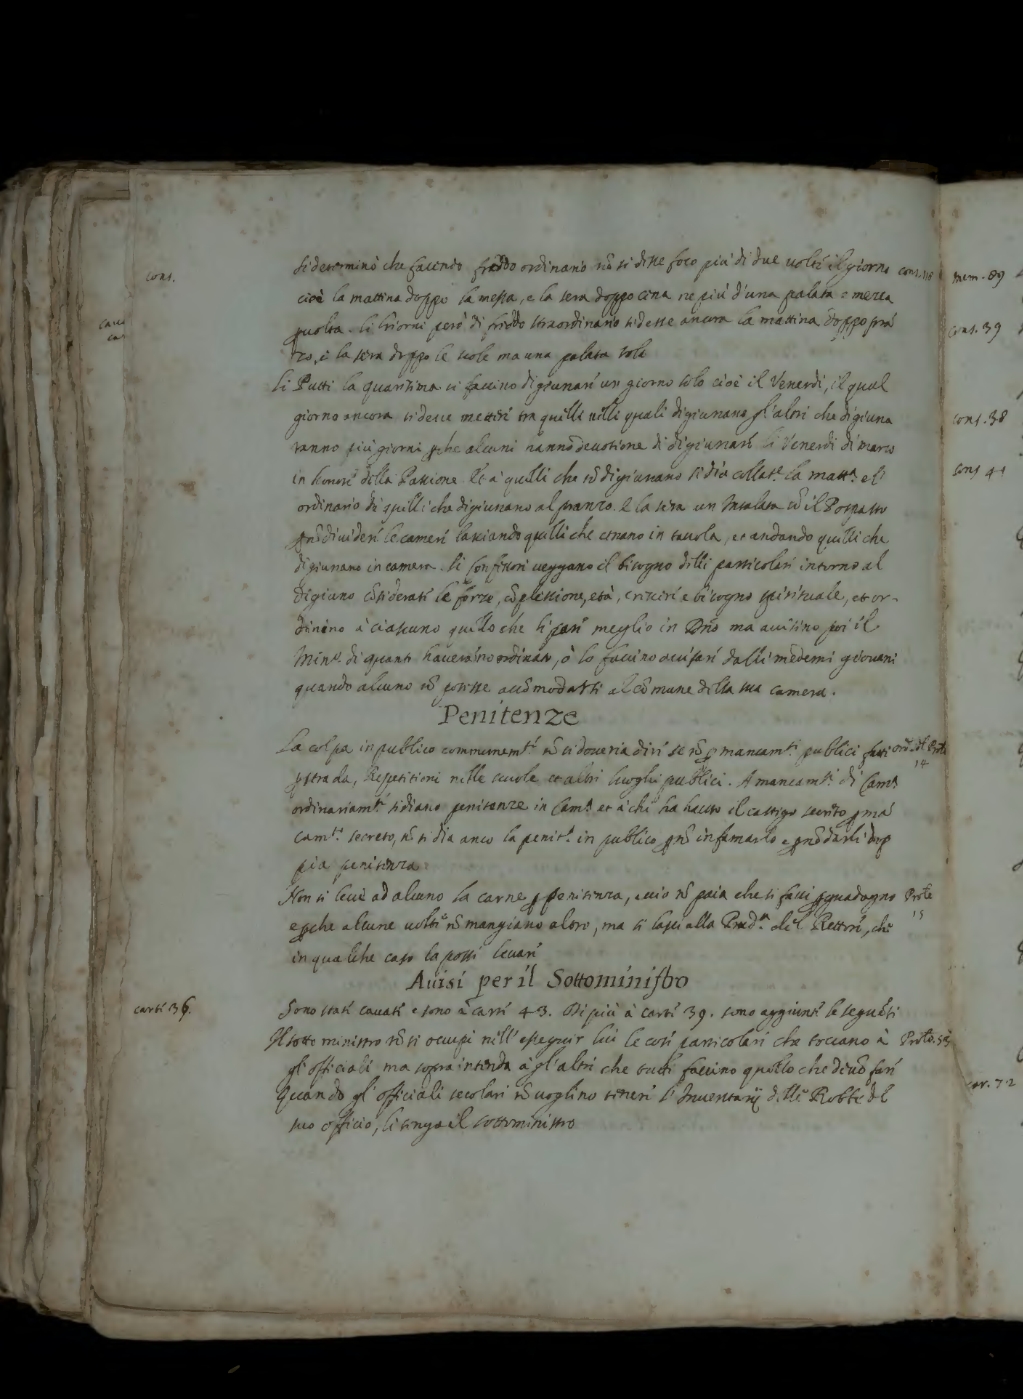 Si determinò che facendo freddo ordinario nõ si desse foco più di due volte il giorno cons. 118
cioè la mattina doppo la messa, e la sera doppo cena ne più d'una palata e meza
p volta. Li giorni però di freddo straordinario si desse ancora la mattina doppo prã
zo, e la sera doppo le scole ma una palata sola
cons.
Li Putti la quaresima si faccino digiunare un giorno solo cioè il Venerdì, il qual
giorno ancora si deve mettere tra quelli nelli quali digiunano gl'altri che digiuna
ranno più giorni pche alcuni hanno devotione di digiunare li Venerdì di marzo
in honore della Passione. Et a quelli che nõ digiunano si dia collat.e la matt.a et l'
ordinario di quelli che digiunano al pranzo. E la sera un Insalata cõ il Pospasto
p nõ dividere le camere lasciando quelli che cenano in tavola, et andando quelli che
digiunano in camera. Li Confessori veggano il bisogno delli particolari intorno al
digiuno cõsiderate le forze, cõplessione, età, e bisogno spirituale, et or-
dinino à ciascuno quello che li pare meglio in Dno ma avisino poi il
Min.o di quanto haveranno ordinato, ò lo faccino avisare dalli medemi giovani
quando alcuno nõ potesse accõmodarsi al cõmune della sua camera.
Penitenze
La colpa in publico communem.te nõ si doveria dire se nõ p mancam.ti publici fatti
14
p strada, Repetitioni nelle scuole et altri luoghi publici. A mancam.ti di Cam.a
ordinariam.te si diano penitenze in Cam.a et à chi ha havuto il castigo secreto p mã
cam.to secreto, nõ si dia anco la penit.a in publico p nõ infamarlo e p nõ darli dop
pia penitenza.
Non si levi ad alcuno la carne p penitenza, acciò nõ paia che si facci p guadagno Prote
15
e pche alcune volte nõ mangiano altro, ma si lasci alla Prud.a del Rettore, che
in qualche caso la possi levare
Avisi per il Sottoministro
carte 36.
Sono stati cavati e sono à carte 43. Di più à carte 39. sono aggiunte le seguẽti
Il sotto ministro nõ si occupi nell'esseguir lui le cose particolari che toccano à
gl'officiali ma sopra intenda à gl'altri che tutti faccino quello che devõ fare
Quando gl'officiali secolari nõ voglino tenere l'Inventarij delle Robbe del
suo officio, li tenga il sottoministro
mem. 89
cons. 39
cons. 38
cons 41
car. 72